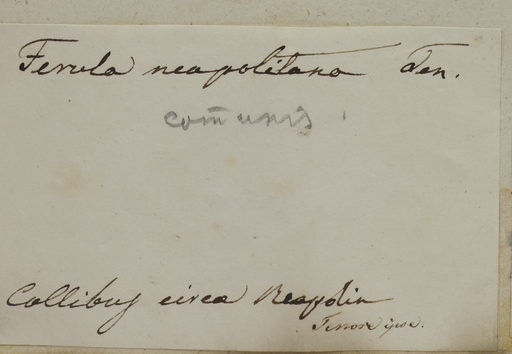 Ferula neapolitana Ten.
com̄unis.
Collibus circa Neapolin
Tenore ipse.